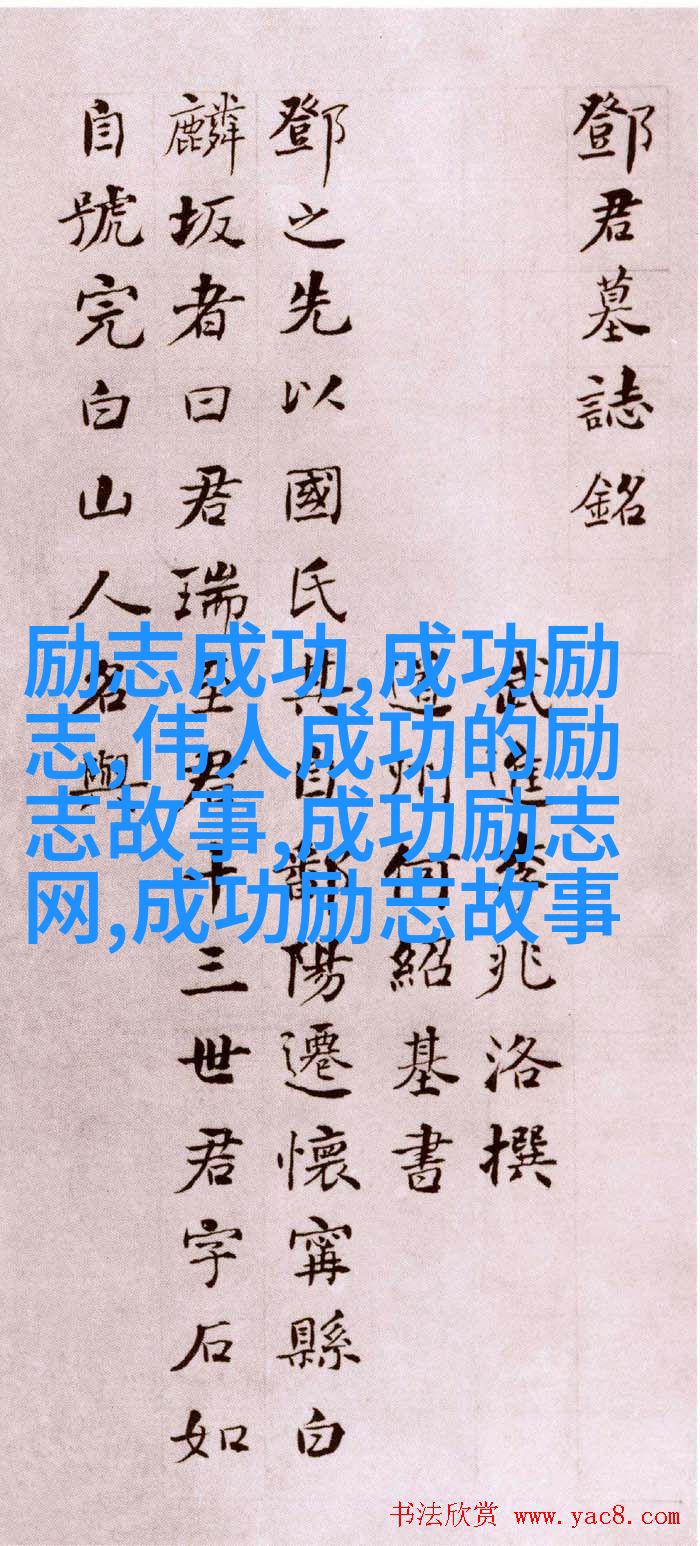 鄧君墓誌銘
武進李兆洛撰
道州何紹基書
鄧之先以國氏其自鄱陽遷懷甯縣白
麟坂者曰君瑞至君十三世君字石如
自號完白山人名與
励志成功,成功励
志,伟人成功的励
志故事,成功励志
网,成功励志故事
书法欣赏 www.yac8.com